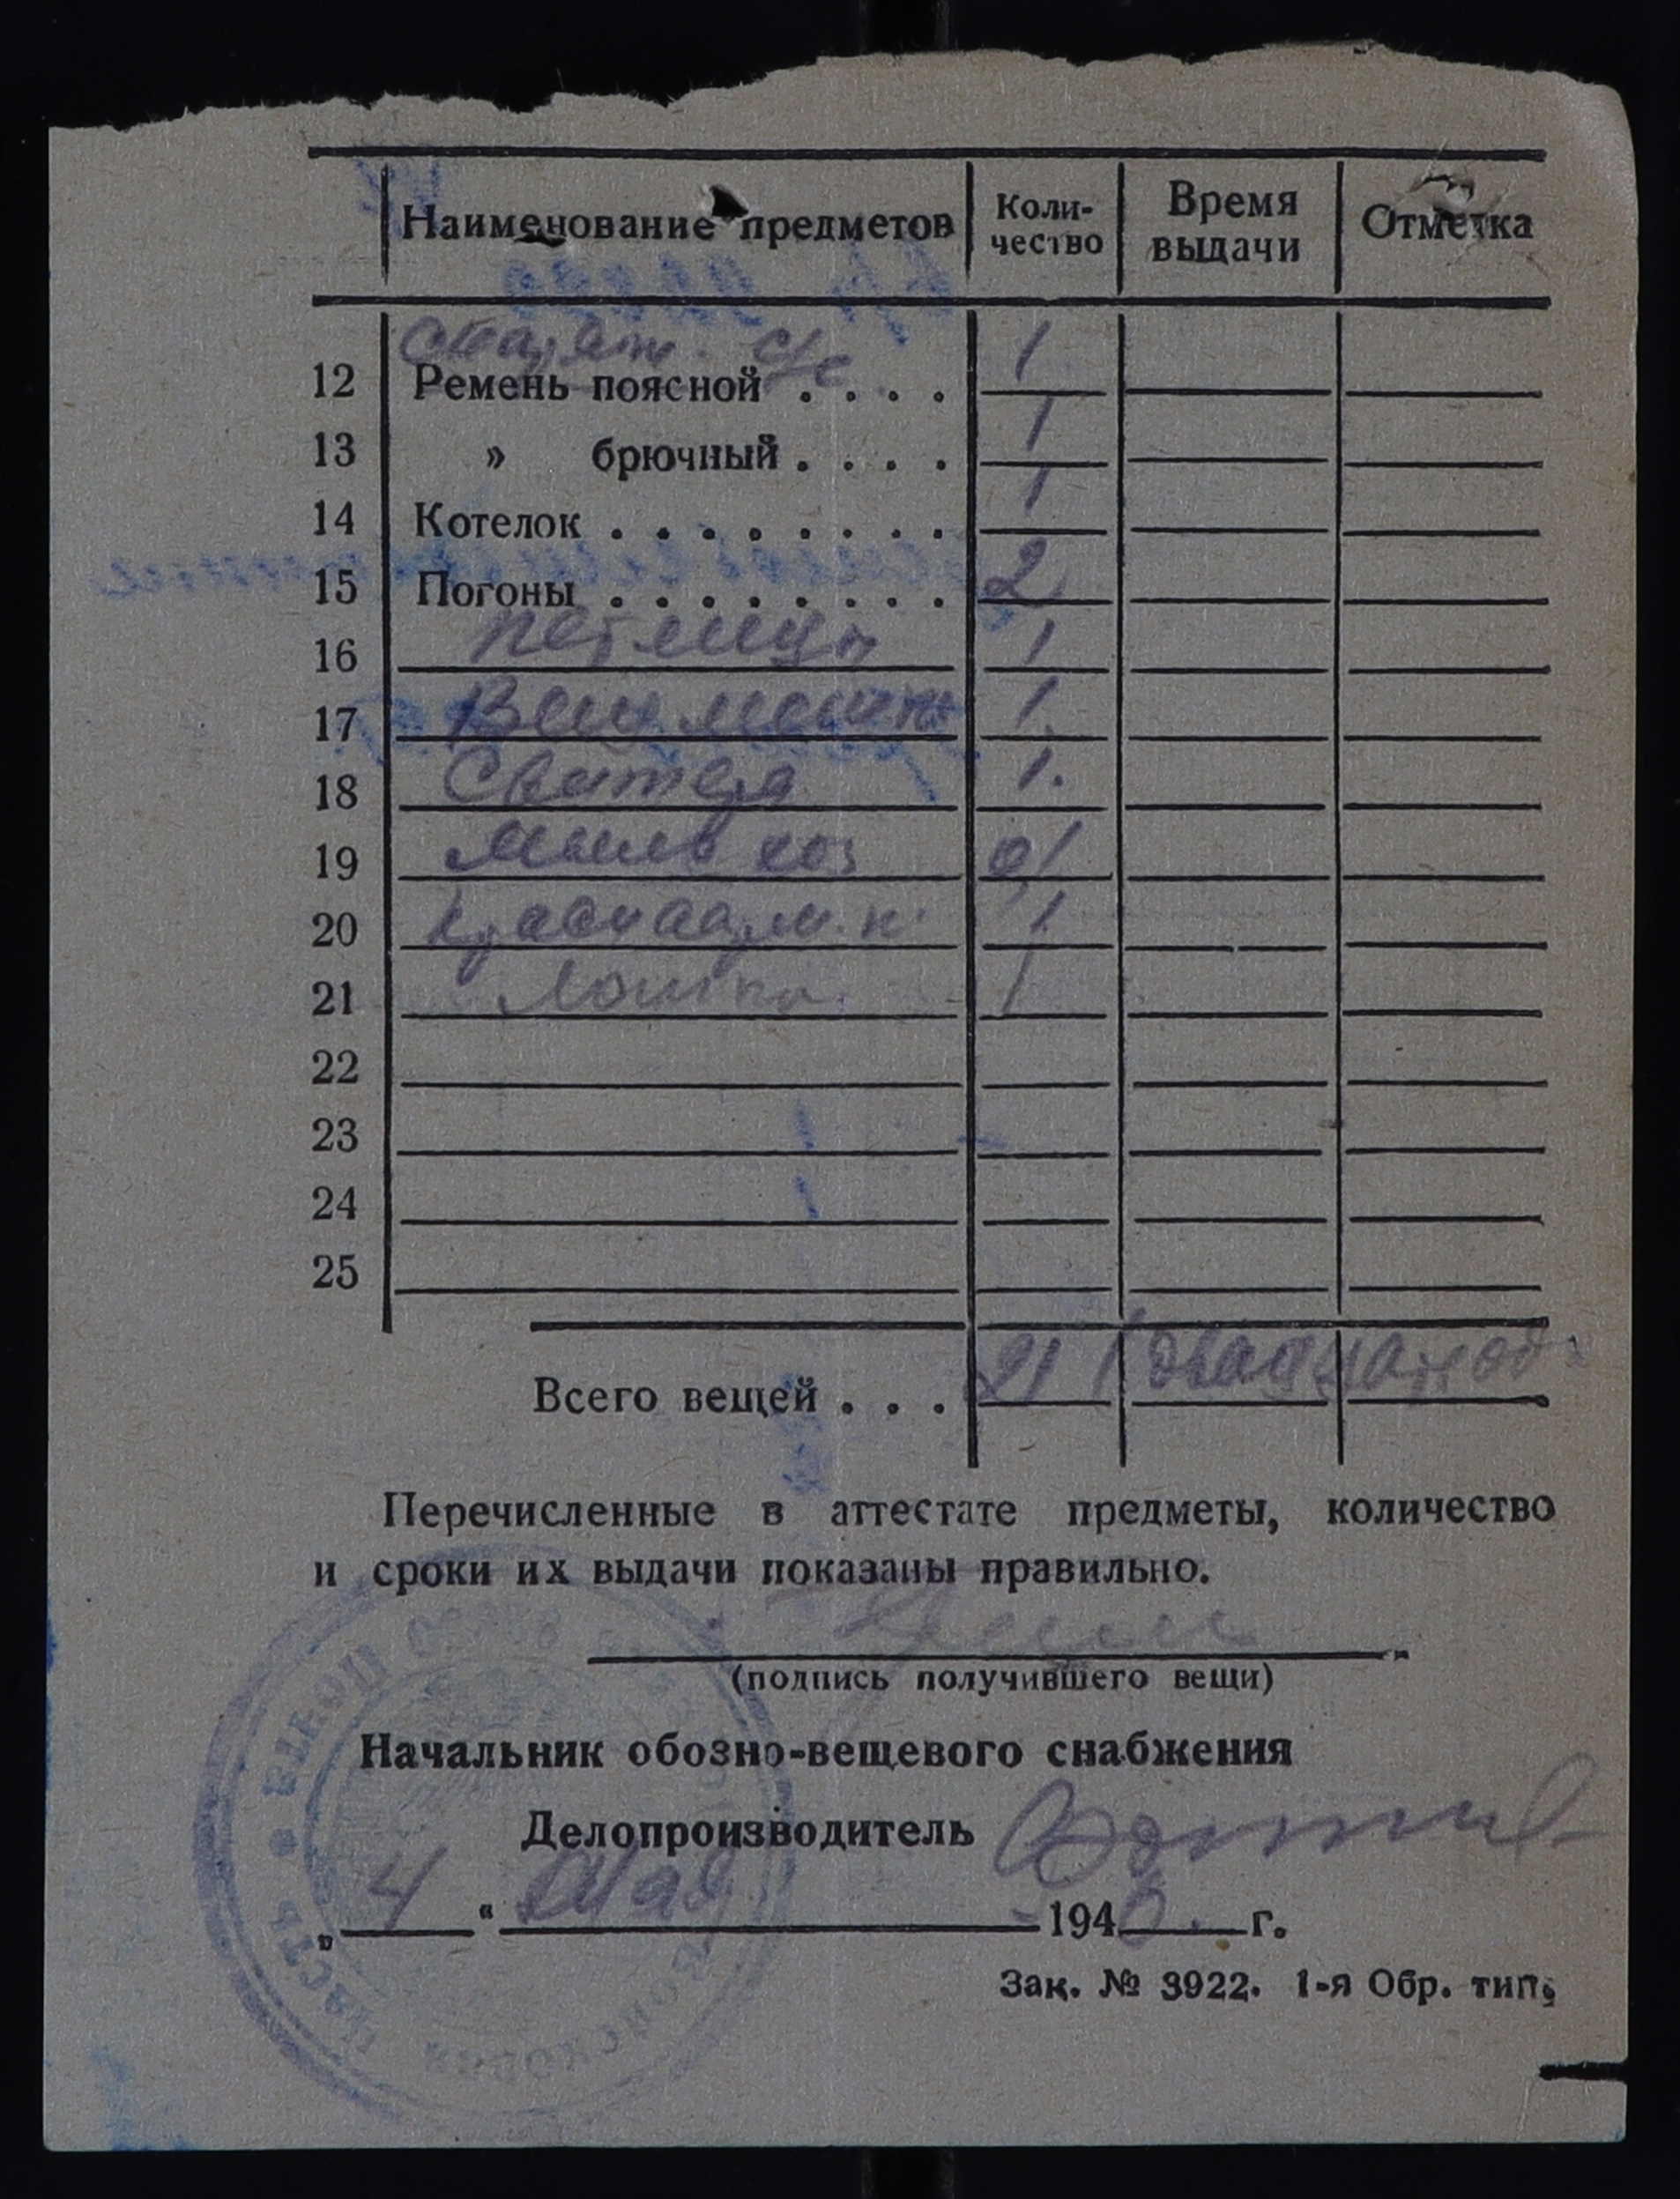 Наименование предметов Количество Время выдачи Отметка
1
12 Ремень поясной . . . .
13 » брючный . . . . 1
14 Котелок . . . . . . . . 1
15 Погоны . . . . . . . . 2
16 петлицы 1
17 Вещ мешок 1.
18 Свитера 1.
19 Мыло хоз 01
20 Красноарм. к. 1
21 Ложка 1
22
23
24
25
Всего вещей . . . 21 (двадцать од
Перечисленные в аттестате предметы, количество
и сроки их выдачи показаны правильно.
(подпись получившего вещи)
Начальник обозно-вещевого снабжения
Делопроизводитель
„ 4 “ Мая 194 г.
Зак. № 3922. 1-я Обр. тип.
ВОЙСКОВАЯ ЧАСТЬ